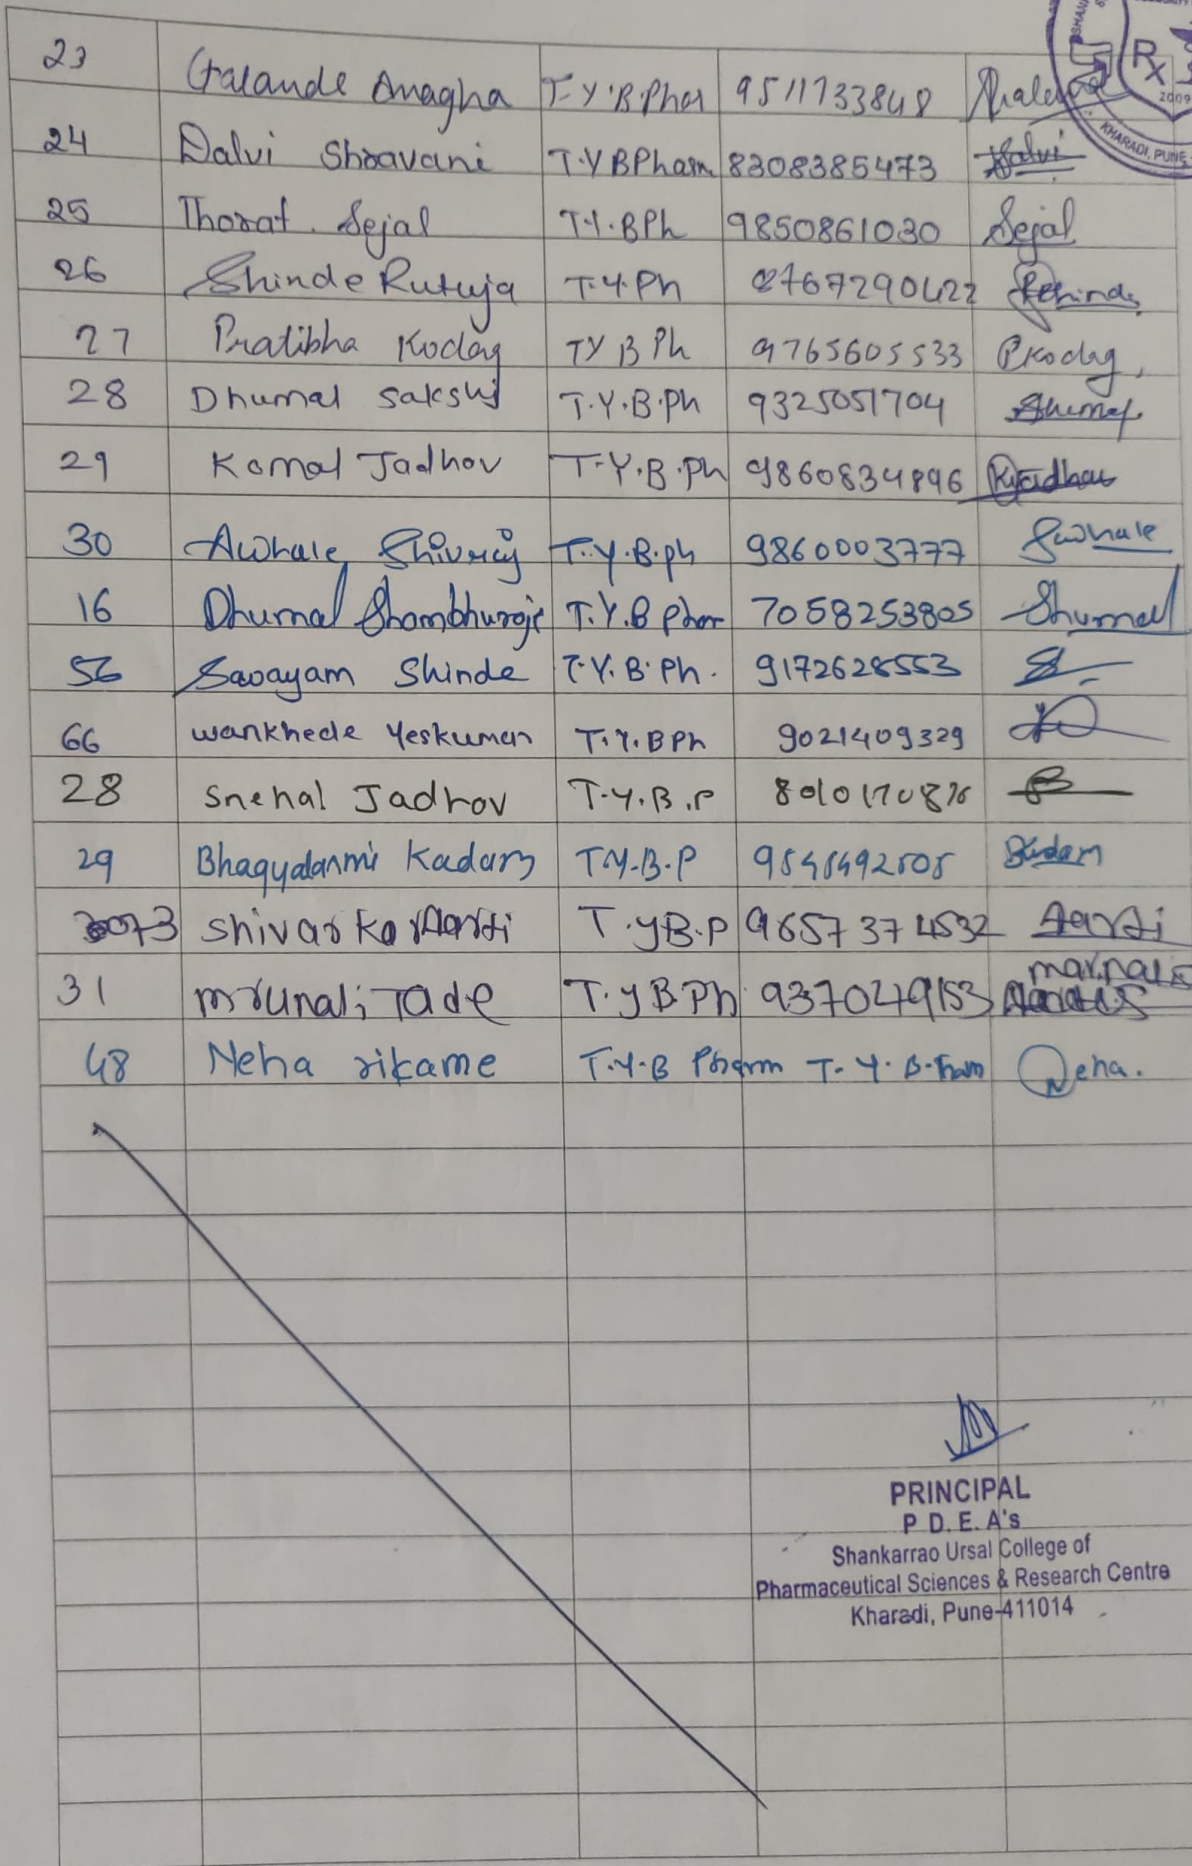 23 Galande Anagha T.Y.B.Phar 9511733848
24 Dalvi Shravani T.Y BPharm 8308385473 Dalvi
25 Thorat Sejal T.Y.BPh 9850861030 Sejal
26 Shinde Rutuja T.Y.Ph 8767290422 Rshinde
27 Pratibha Kodag TY B Ph 9765605533 Pkodag
28 Dhumal Sakshi T.Y.B.Ph 9325051704 Dhumal
29 Komal Jadhav T.Y.B.Ph 9860834896 KJadhav
30 Awhale Shivraj T.Y.B.ph 9860003777 Sawhale
16 Dhumal Shambhuraje T.Y.B phar 7058253805 Dhumal
56 Savayam Shinde T.Y.B.Ph. 9172628553
66 wankhede Yeskumar T.Y.BPh 9021409329
28 Snehal Jadhav T.Y.B.P
29 Kadam T.Y.B.P Kadam
shivarkar Aarti T.YB.P 9657374532 Aarti
31 mrunali Tade T.YBPh 9370249153
48 Neha rikame T.Y-B Pharm T.Y.B-Pham Neha.
Rx
2009
KHARADI, PUNE
PRINCIPAL
P D. E. A's
Shankarrao Ursal College of
Pharmaceutical Sciences & Research Centre
Kharadi, Pune-411014